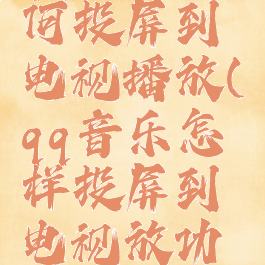 何投屏到
电视播放(
qq音乐怎
样投屏到
电视放功